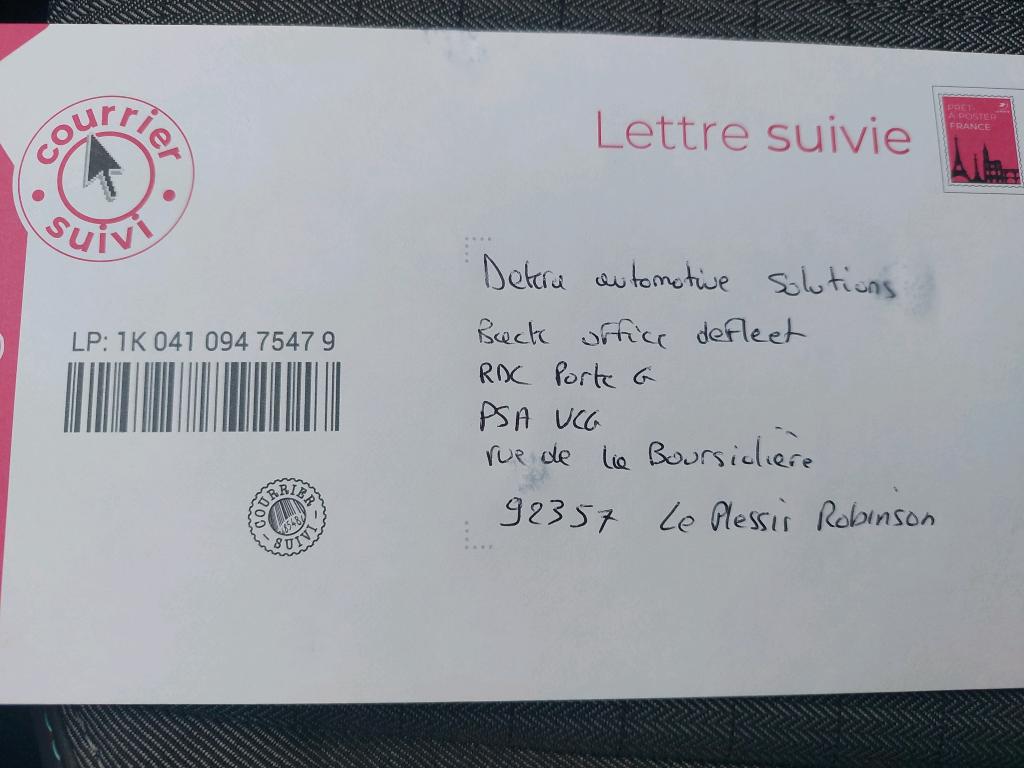 courrier
suivi
Lettre suivie
PRÊT-
À POSTER
FRANCE
Dekra automotive solutions
Back office defleet
RDC Porte G
PSA VCG
rue de la Boursidière
92357 Le Plessis Robinson
LP: 1K 041 094 7547 9
COURRIER
SUIVI